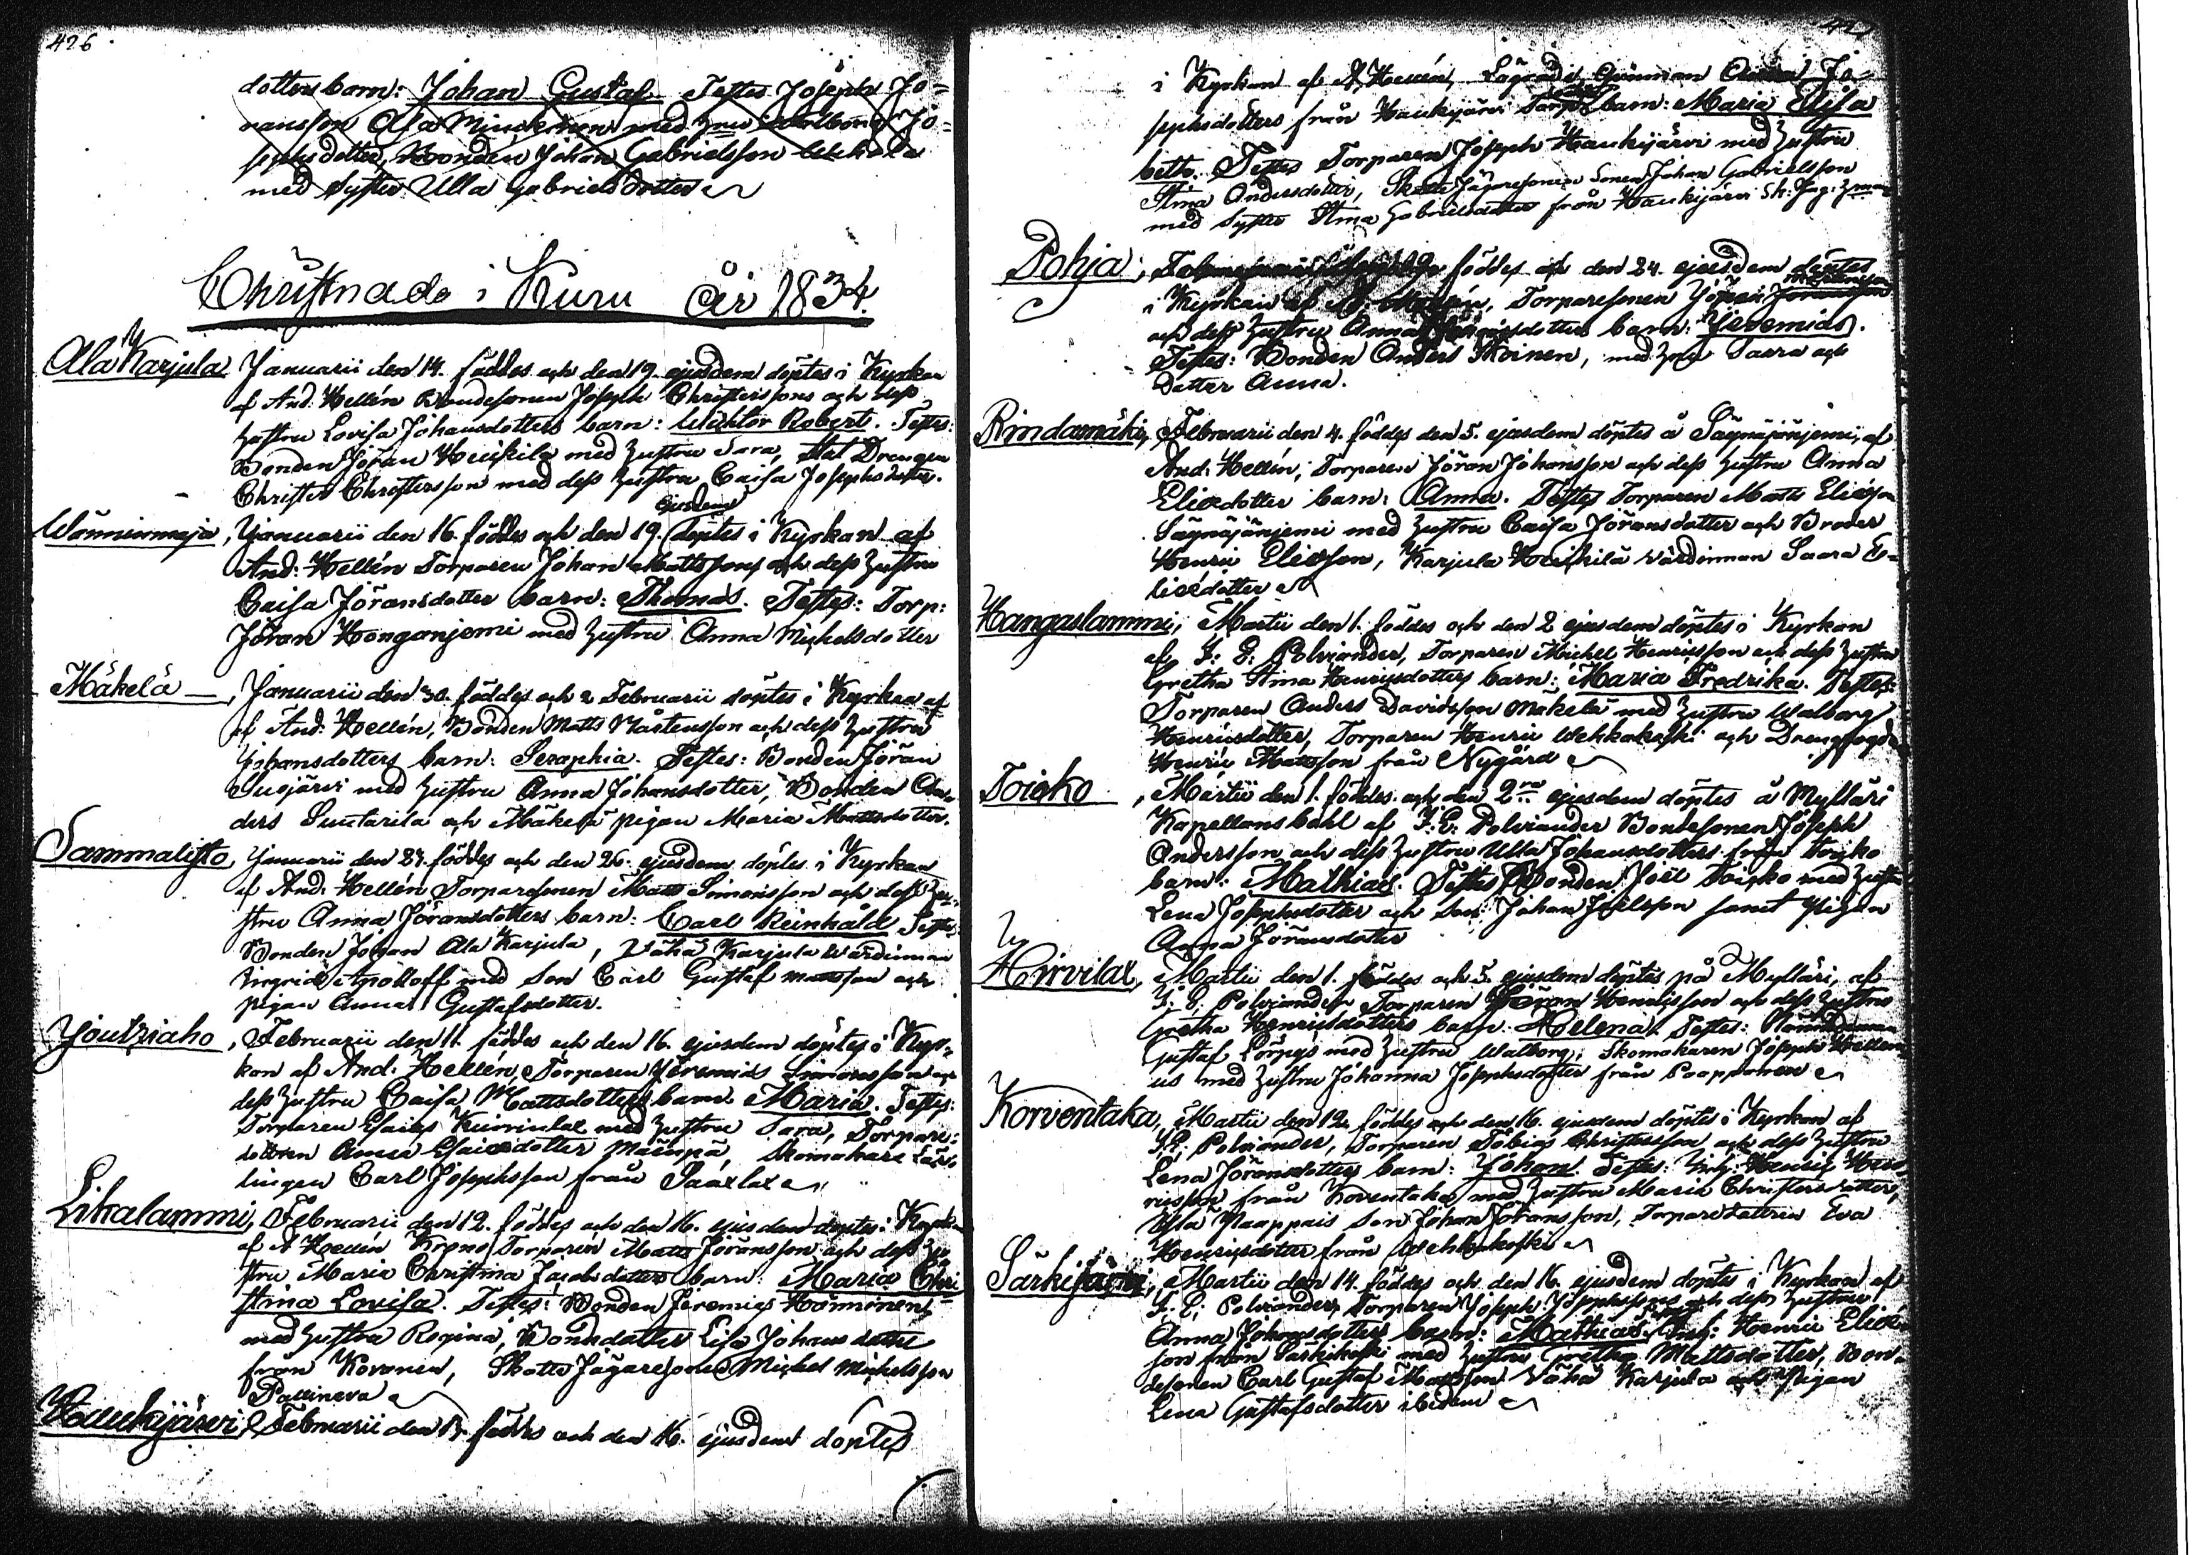 426
dottersbarn: Johan Gustaf Testes Joseph Jö=
ransson Ala Minckinen med Hustru Walborg Jo=
sephsdotter, Bonden Johan Gabrielsson Wehkala
med Syster Ulla Gabrielsdotter
Christnade i Kuru År 1834.
Ala Karjula Januarii den 14. föddes och den 19. ejusdem döptes i Kyrkan
af And. Hellén Bondesonen Joseph Christerssons och dess
hustru Lovisa Johansdotters barn: Wiktor Robert. Testes:
Bonden Jöran Heickilä med hustru Sara, Drengen
Christer Christersson med dess hustru Caisa Josephsdotter.
ejusdem
Wänninmaja, Januarii den 16. föddes och den 19. döptes i Kyrkan af
And: Hellén Torparen Johan Mattssons och dess hustru
Caisa Jöransdotter barn: Thomas. Testes: Torp:
Jöran Honganjemi med hustru Anna Michelsdotter
Mäkelä, Januarii den 30. föddes och 2 Februarii döptes i Kyrkan af
af And: Hellén, Bonden Matts Mårtensson och dess hustru
Johansdotters barn: Seraphia. Testes: Bonden Jöran
Susjärvi med hustru Anna Johansdotter, Bonden An=
ders Suntarila och Mäkelä pigan Maria Mattsdotter.
Sammalisto, Januarii den 24. föddes och den 26. ejusdem döptes i Kyrkan
af And. Hellén Torparesonen Matts Simonsson och dess hu=
stru Anna Jöransdotters barn: Carl Reinhåld Testes
Bonden Johan Ala Karjula, Vähä Karjula Wärdinnan
Ingrid Apolloff med Son Carl Gustaf Mattsson och
pigan Anna Gustafsdotter.
Joutziaho, Februarii den 11. föddes och den 16. ejusdem döptes i Kyr=
kan af And. Hellén, Torparen Jeremias Simonsson och
dess hustru Caisa Mattsdotters barn Maria. Testes:
Torparen Esaias Kuorinlax med hustru Sara, Torpare=
dottren Anna Esaiædotter Mäenpä, Skomakare Lär=
lingen Carl Josephsson från Saaxlax
Likalammi, Februarii den 12. föddes och den 16. ejusdem döptes i Kyrkan
af A Hellén Krono Torparen Matts Jöransson och dess hu
stru Maria Christina Jacobsdotters barn: Maria Chri
stina Lovisa. Testes: Bonden Jeremias Hänninen
med hustru Regina, Bondedotter Lisa Johansdotter
från Kovonen, Skatte Jägaresonen Michel Michelsson
Pallineva
Haukijärvi, Februarii den 13. föddes och den 16. ejusdem döptes
427
i Kyrkan af A, Hellén, Jo=
sephsdotters från Haukijärvi Torp barn: Maria Elisa
beth. Testes Torparen Joseph Haukijärvi med hustru
Stina Andersdotter, Skatte Jägaresonen Sonen Johan Gabrielsson
med Syster Stina Gabrielsdotter från Haukijärvi
Pohja, föddes och den 24. ejusdem döptes
i Kyrkan af, Torparesonen
och dess hustru Anna barn: Jeremias.
Testes: Bonden Anders Skoinen, med Saara och
Dotter Anna.
Rindamäki, Februarii den 4. föddes den 5. ejusdem döptes å Säynäjänjemi, af
And. Hellén, Torparen Jöran Johansson och dess hustru Anna
Eliædotter barn: Anna. Testes Torparen Matts Eliæson
Säynäjänjemi med hustru Caisa Jöransdotter och Broder
Henric Eliæson, Karjula Heikkilä Wärdinnan Saara E=
liædotter
Hangaslammi, Martii den 1. föddes och den 2 ejusdem döptes i Kyrkan
af J: E: Polviander, Torparen Michel Henricsson och dess hustru
Gretha Stina Henricsdotters barn: Maria Fredrika. Testes:
Torparen Anders Davidsson Mäkelä med hustru Walborg
Henricsdotter, Torparen Henric Wehkakoski och Drengfogden
Henric Mattsson från Nygård
Toicko, Martii den 1. föddes och den 2ra ejusdem döptes å Mylläri
Kapellans bohl af J: E: Polviander Bondesonen Joseph
Andersson och dess hustru Ulla Johansdotters från toicko
barn: Mathias. Testes Bonden Joël Toicko med hustru
Lena Josephsdotter och Son Johan Joelsson samt pigan
Anna Jöransdotter
Hirvilax, Martii den 1. föddes och 5. ejusdem döptes på Mylläri, af
J. E: Polviander Torparen Jöran Henricsson och dess hustru
Gretha Henricsdotters barn: Helena. Testes:
Gustaf Pörpys med hustru Walborg, Skomakaren Joseph Hellen
us med hustru Johanna Josephsdotter från Paapponen
Korventaka, Martii den 12. föddes och den 16. ejusdem döptes i Kyrkan af
J.E. Polviander, Torparen Tobias Christersson och dess hustru
Lena Jöransdotters barn: Johan Testes: Inh: Henric Hen
ricsson från Korventaka med hustru Maria Christersdotter,
Ylä Naappais Son Johan Johansson, Torparedottren Eva
Henricsdotter från Wehkakoski
Särkijärvi, Martii den 14. föddes och den 16. ejusdem döptes i Kyrkan af
J. E: Polviander, Torparen Joseph Josephssons och dess hustru
Anna Johansdotters barn: Mathias. Inh: Henric Eliæ
son från Särkikoski med hustru Gretha Mattsdotter, Bon=
desonen Carl Gustaf Mattsson Vähä Karjula och Pigan
Lena Gustafsdotter ibidem